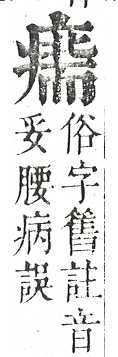 俗字舊註音
妥腰病誤